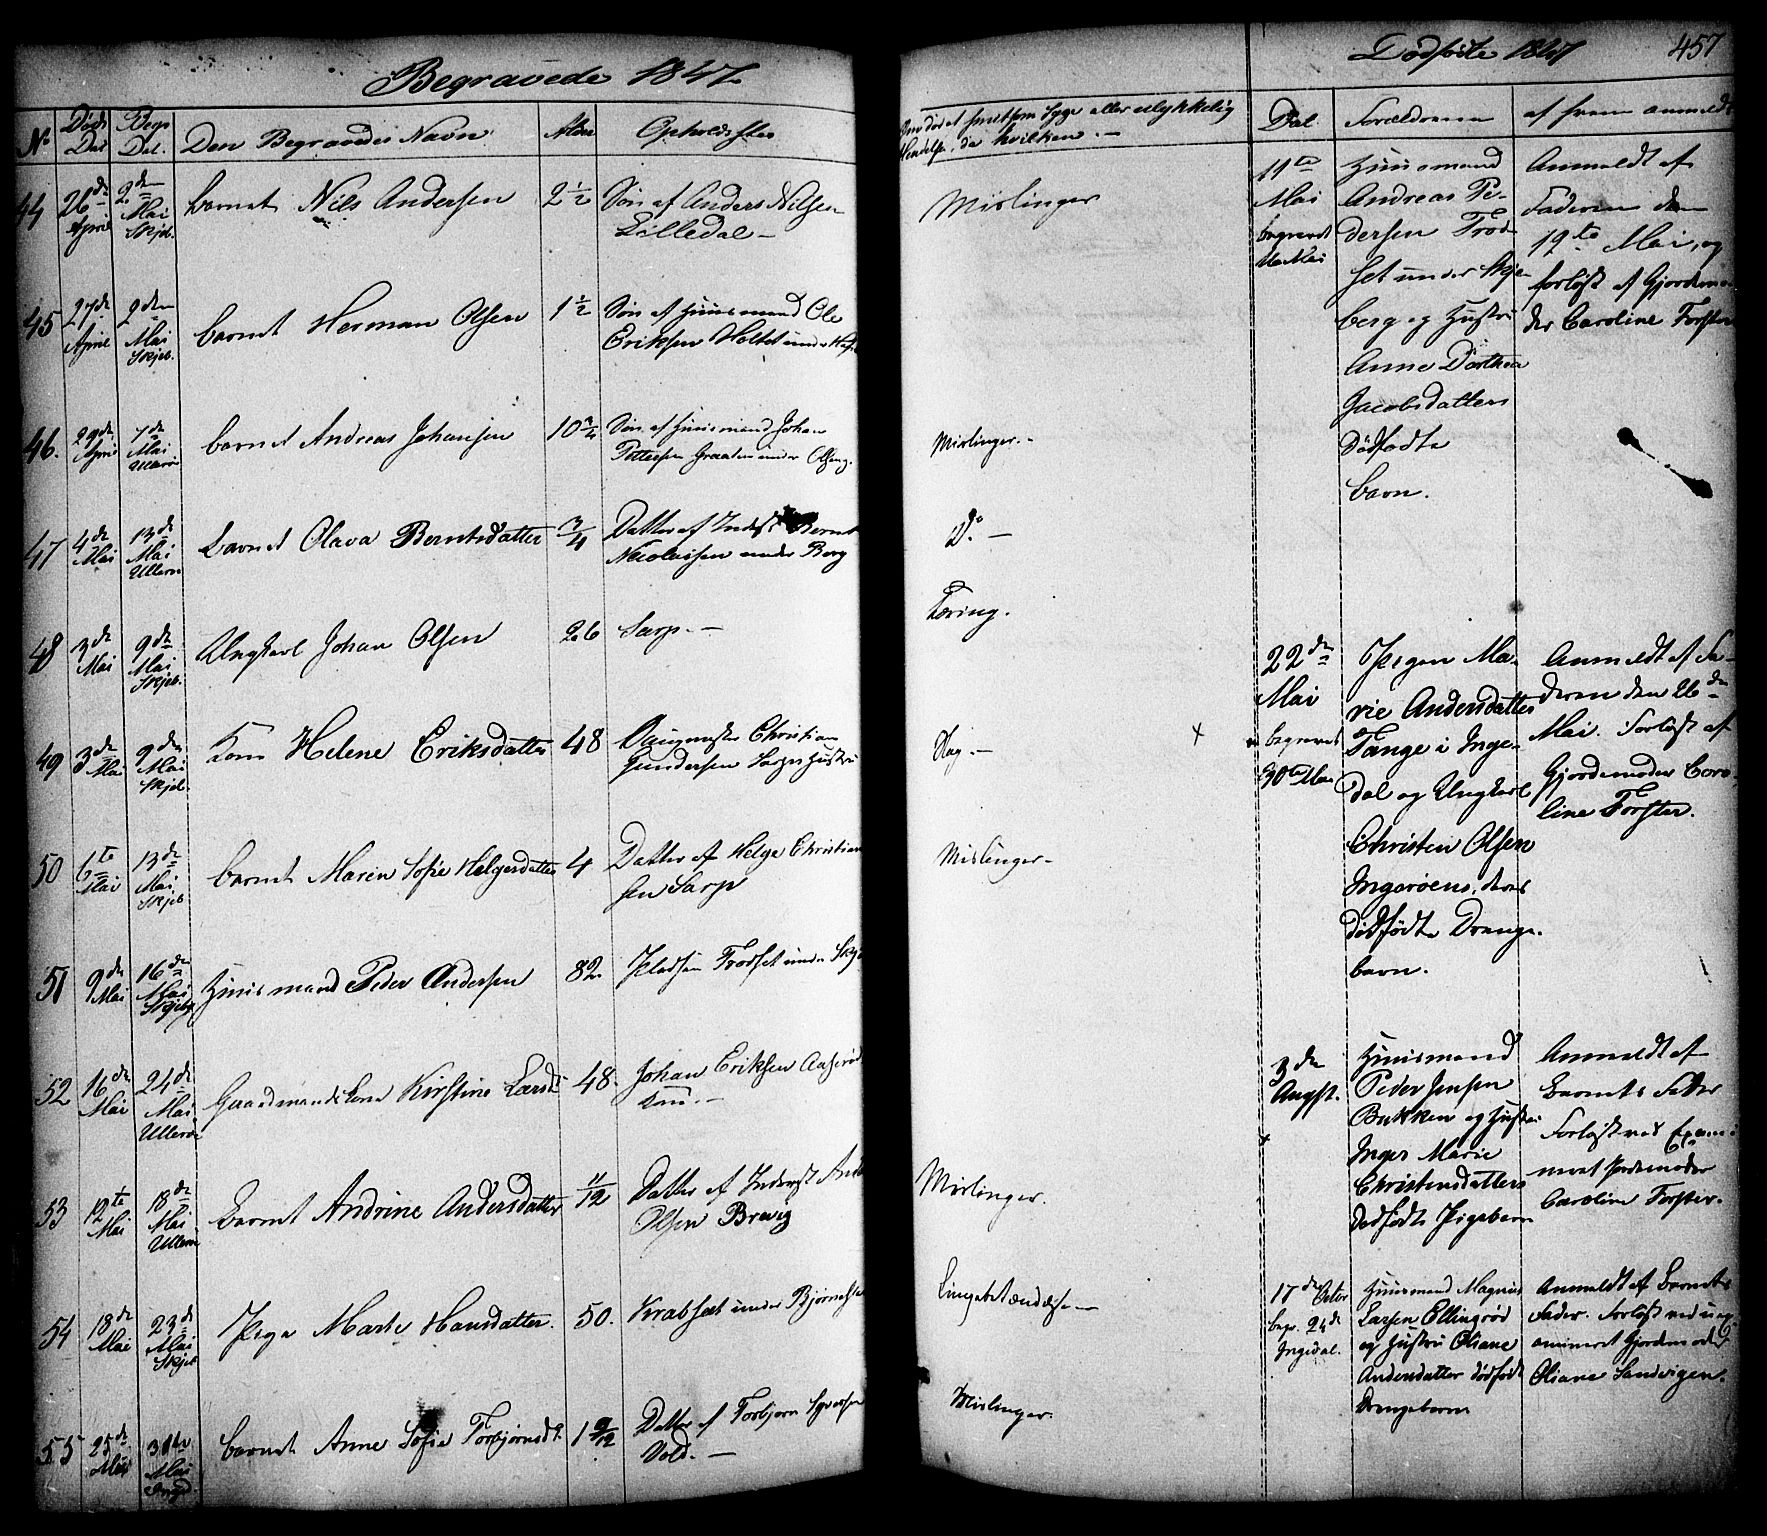 Begravede 1847
No Døds Dat Begr. Dat. Den Begravedes Navn Alder Opholdssted
44 26de April 2den Mai Skjeb. barnet Nils Andersen 2 1/2 Søn af Anders Nilsen
Lilledal —
45 27de April 2den Mai Skjeb. barnet Herman Olsen 1 1/2 Søn af Huusmand Ole
Eriksen Holtet under
46. 29de April 7de Mai Ullerø barnet Andreas Johansen 10 3/4 Søn af Huusmand Johan
Pettersen Graaten under
47 4de Mai 13de Mai Ullerø barnet Olava Berntsdatter 3/4 Datter af Inderst Bernt
Nicolaisen under Borg
48 3de Mai 9de Mai Skjeb. Ungkarl Johan Olsen 26 Sarp. —
49 3de Mai 9de Mai Skjeb. Kone Helene Eriksdatter 48 Christian
Gundersen Sarps Hustru
50 6te Mai 13de Mai Skjeb barnet Maren Sofie Helgesdatter 4 Datter af Helge Christian
sen Sarp
51 9de Mai 16de Mai Skjeb Huusmand Peder Andersen 82 Pladsen Trodset under Skje
52 16de Mai 24de Mai Ullerø Gaardmandskone Kirstine Larsd. 48. Johan Eriksen Aaserød
Kone. —
53 12te Mai 18de Mai Ullerø Barnet Andrine Andersdatter 11/12 Datter af Inderst
Olsen Brevig
54 18de Mai 23de Mai Skjeb Pige Marte Hansdatter. 50. Krabsæt under Bjørnestad
55 25de Mai 31te Mai Inged. barnet Anne Sofie Torbjørnsdt. 1 9/12 Datter af Torbjørn
Vold. —
Om død af smitsom Syge eller ulykkelig
Hendelse, da hvilken. —
Mislinger
Mislinger. -
Do. —
Tæring.
Mislinger -
Mislinger.
Mislinger.
Dødfødte 1847 457
Dat. Forældrene af hvem anmeldt
19te
Mai
begravet
Mai
Huusmand
Andreas Pe-
dersen Trod-
set under Skje
berg og Hustru
Anne Dorthea
Jacobsdatters
Dødfødte
barn.
Anmeldt af
Faderen den
19te Mai, og
forløst af Gjordemo
der Caroline Forster
22de
Mai
begravet
30te Mai
Pigen Ma-
rie Andersdatter
Tange i Inge-
dal og Ungkarl
Christen Olsen
Ingerøens, deres
dødfødte Drenge-
barn.
Anmeldt af Fa-
deren den 26de
Mai. Forløst af
Gjordemoder Caro-
line Forster.
3de
Augst.
Huusmand
Peder Jensen
Bukken og Hustru
Inger Marie
Christensdatters
dødfødte Pigebarn
Anmeldt af
Barnets Fader
Forløst ved Exami
neret Jordemoder
Caroline Forster.
17de Octbr
begr. 24de
Ingedal.
Huusmand Magnus
Larsen Ellingrød
og Hustru Oliane
Andersdatter dødfødt
Drengebarn
Anmeldt af Barnets
Fader. Forløst ved uex
amineret Gjordmoder
Oliane Sandvigen.